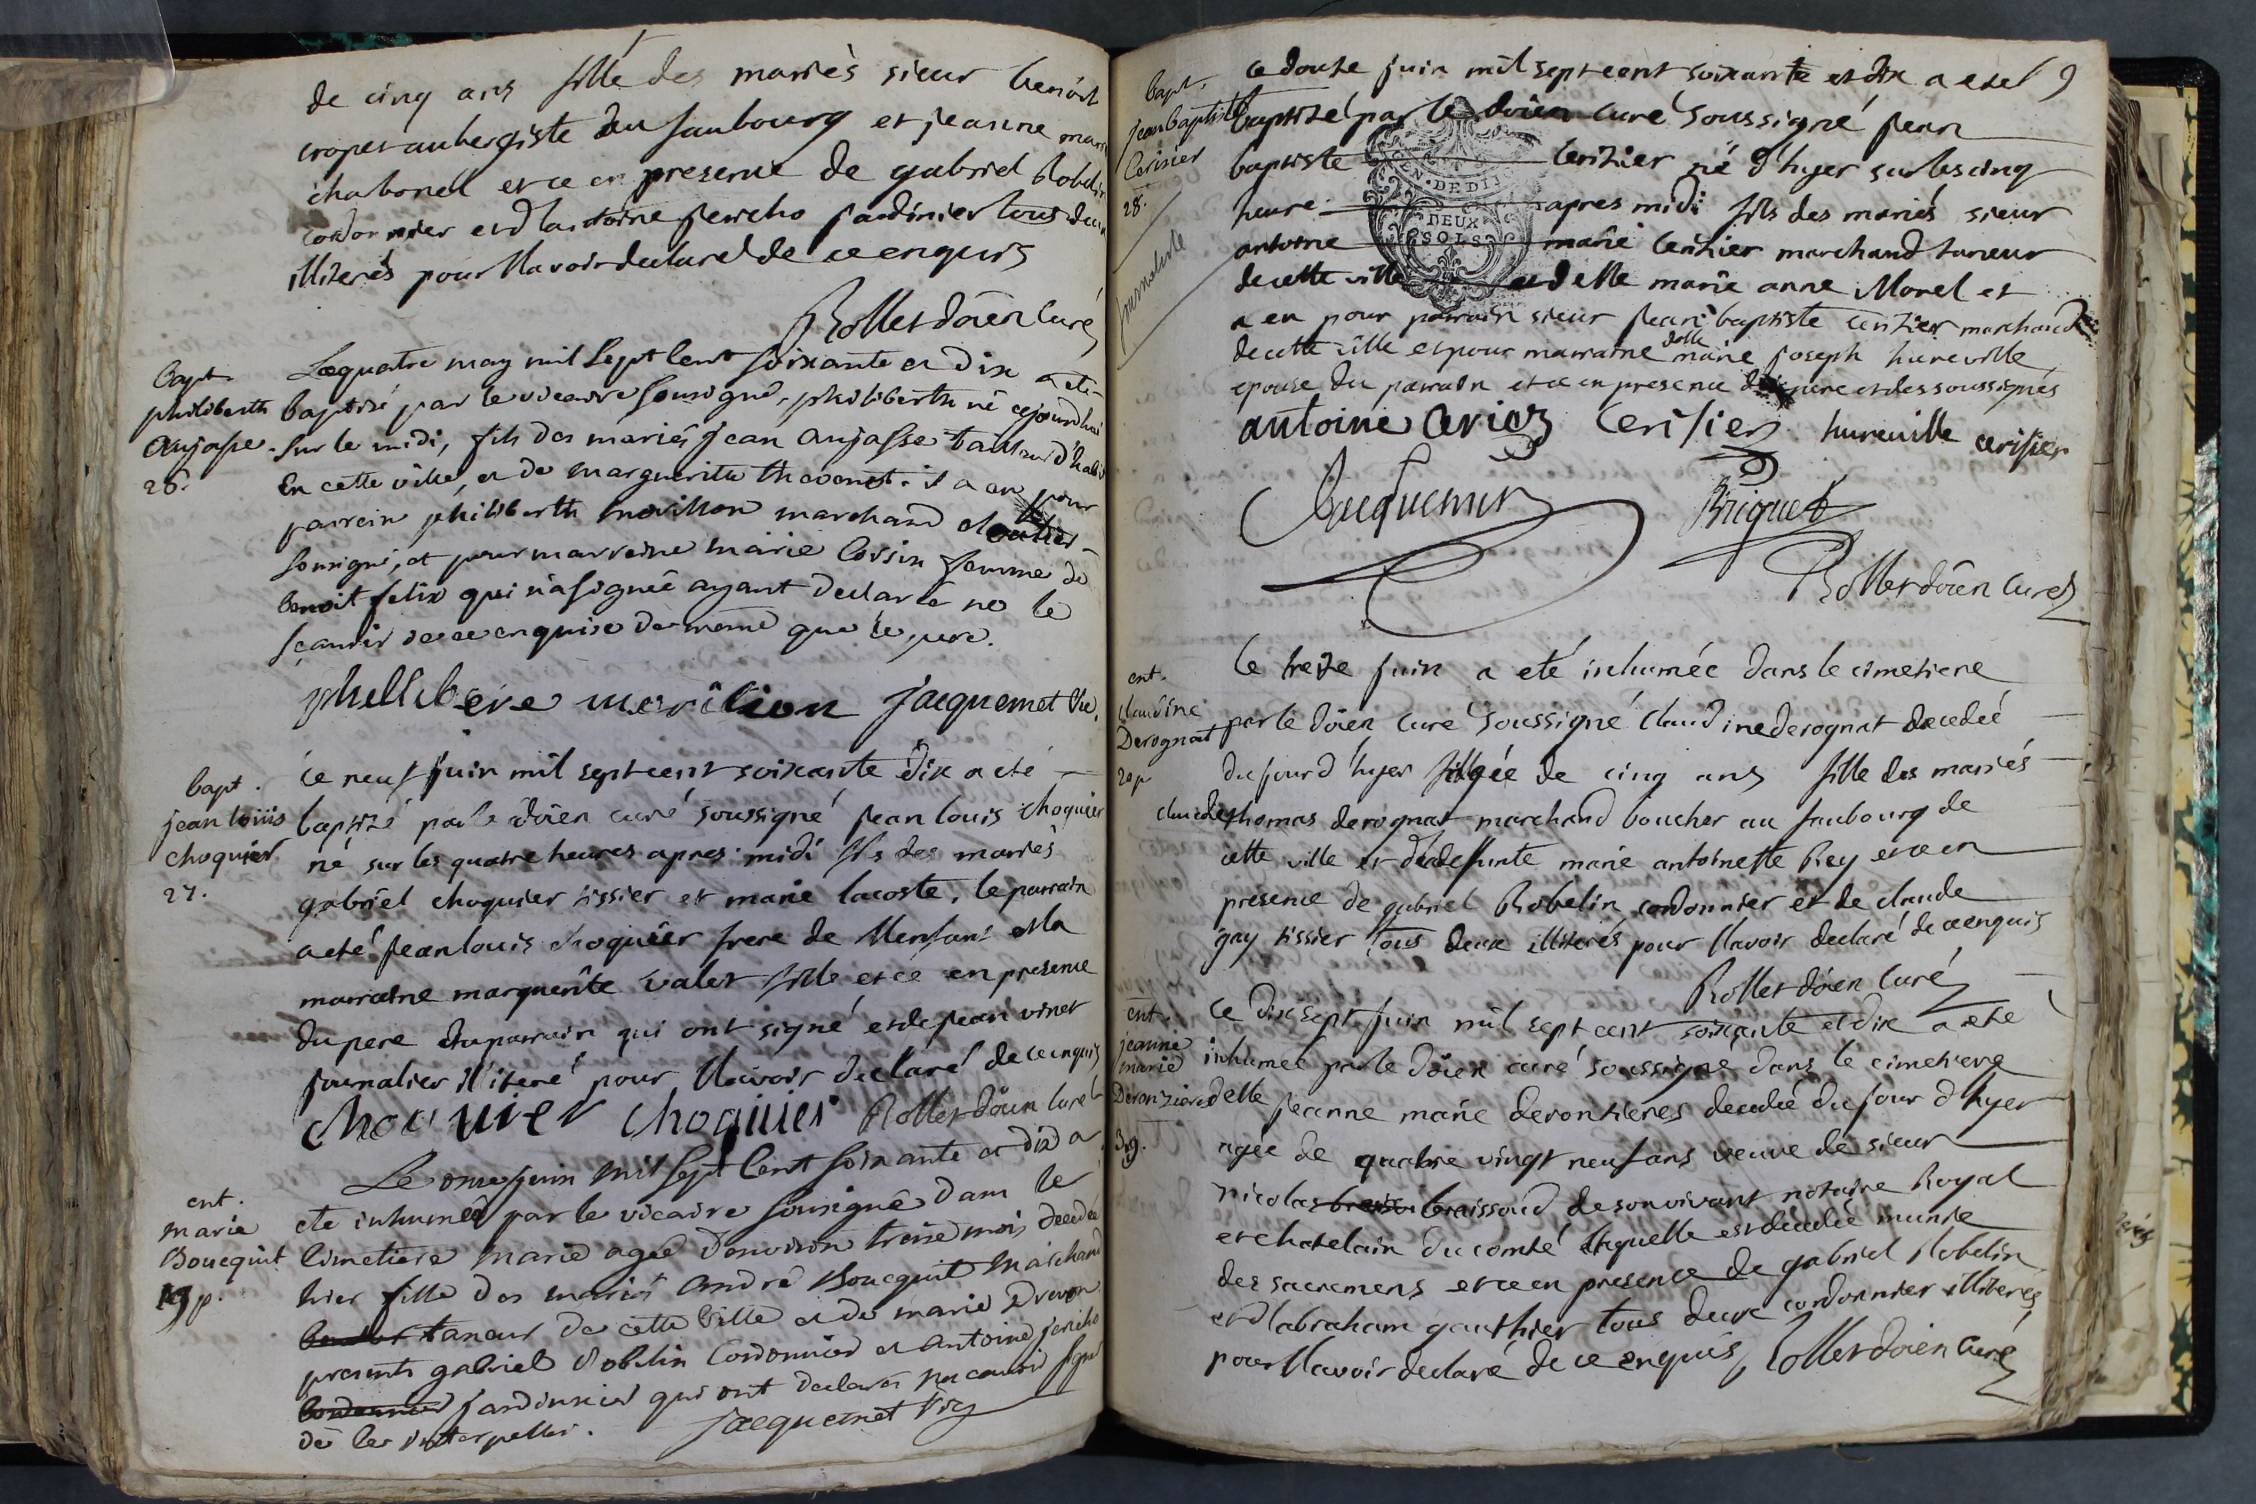 de cinq ans fille des mariés sieur benoit
cropet aubergiste du faubourg et jeanne mari
chabonel et ce en presence de gabriel Robelin
cordonnier et d'lantoine jericho jardinier tous deux
illiterés pour llavoir declaré de ce enquis
Rollet doien Curé
bapt.
philiberth
aujasse.
26.
Le quatre may mil Sept Cent soixante et dix a eté
baptisé par le vicaire soussigné, philiberth né cejourdhui
sur le midi, fils des mariés jean aujasse
En cette ville, et de margueritte thevenet. il a eu pour
parrein philiberth morillon marchand
soussigné, et pour marreine marie Cossin femme de
benoit felix qui n'a signée ayant declarée ne le
sçavoir de ce enquise de meme que le pere.
phellibere morilion jacquemet vic.
bapt.
jean loüis
choquier
27.
ce neuf juin mil sept cent soixante dix a eté
baptizé par le doien curé soussigné jean louis choquier
né sur les quatre heures apres midi fils des mariés
gabriel choquier tissier et marie lacoste, le parrain
a eté jean louis choquier frere de llenfant et la
marraine marguerite valet fille et ce en presence
du pere et du parrain qui ont signé et de jean vinet
journalier illiteré pour llavoir declaré de ce enquis
choquier choquier Rollet doien curé
ent.
marie
Boucquit
19 p.
Le onze juin mil sept Cent soixante et dix a
eté inhumée par le vicaire soussigné dans le
Cimetiere marie agée d'environ treize mois decedée
hier fille des mariés andré Boucquit marchand
taneur de cette ville et de marie Drevon
presents gabriel Robelin Cordonnier et antoine jericho
cordonnier jardinier qui ont declarés ne scavoir signé
de les interpeller. jacquemet vic
9
bapt.
jean baptiste
Cerisier
28.
journaliste
ce douze juin mil sept cent soixante et dix a eté
baptizé par le doien curé soussigné jean
baptiste cerizier né d'hyer sur les cinq
heure apres midi fils des mariés sieur
antoine marie cerizier marchand taneur
de cette ville et delle marie anne Morel et
a eu pour parrain sieur jean baptiste cerizier marchand
de cette ville et pour marraine delle marie joseph hureville
epouse du parrain et ce en presence du pere et des soussignés
antoine Ceriez Cerisier hureuille cerisier
Jacquemin Briquet
Rollet doien Curé
GEN. DE DIJON
DEUX
SOLS
ent.
claudine
Derognat
20 p
le treize juin a eté inhumée dans le cimetiere
par le doien curé soussigné Claudine derognat decedée
du jour d'hyer agée de cinq ans fille des mariés
claude thomas derognat marchand boucher au faubourg de
cette ville et de deffunte marie antoinette Rey et ce en
presence de gabriel Robelin cordonnier et de claude
gay tissier tous deux illiterés pour llavoir declaré de ce enquis
Rollet doien Curé
ent.
jeanne
marie
Deronzieres
39.
ce dix sept juin mil sept cent soixante et dix a eté
inhumée par le doien curé soussigné dans le cimetiere
delle jeanne marie deronzieres decedée du jour d'hyer
agée de quatre vingt neuf ans veuve de sieur
nicolas braissoud de son vivant notaire Royal
et chatelain du comté laquelle est decedée munie
des sacremens et ce en presence de gabriel Robelin
et d'labraham gauthier tous deux cordonnier illiterés
pour llavoir declaré de ce enquis Rollet doien Curé